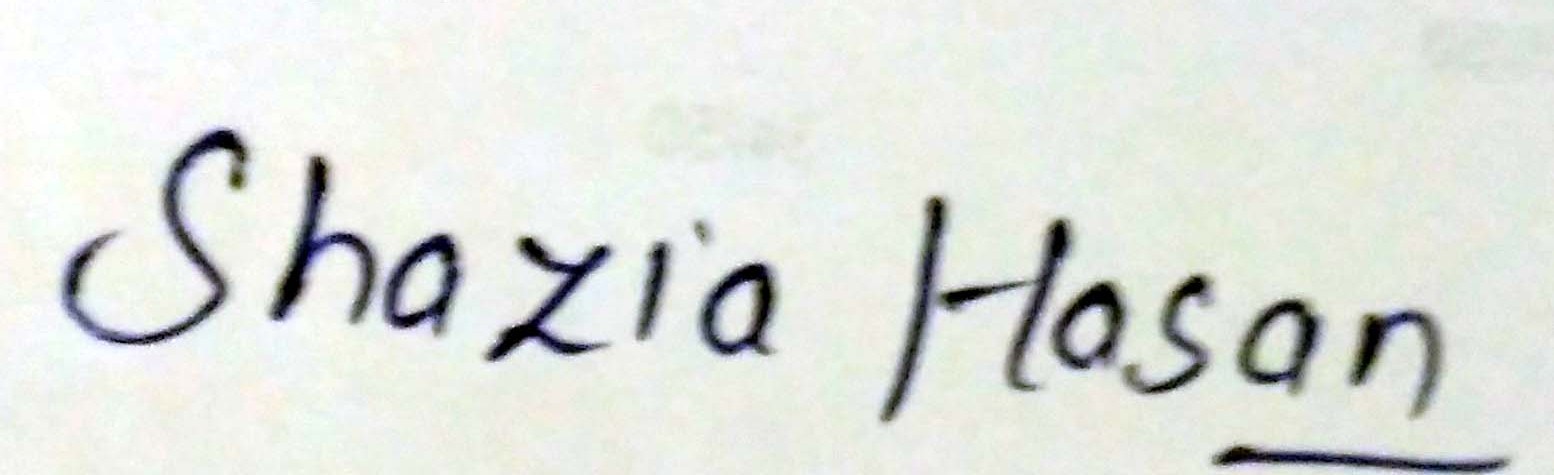 Shazia Hasan